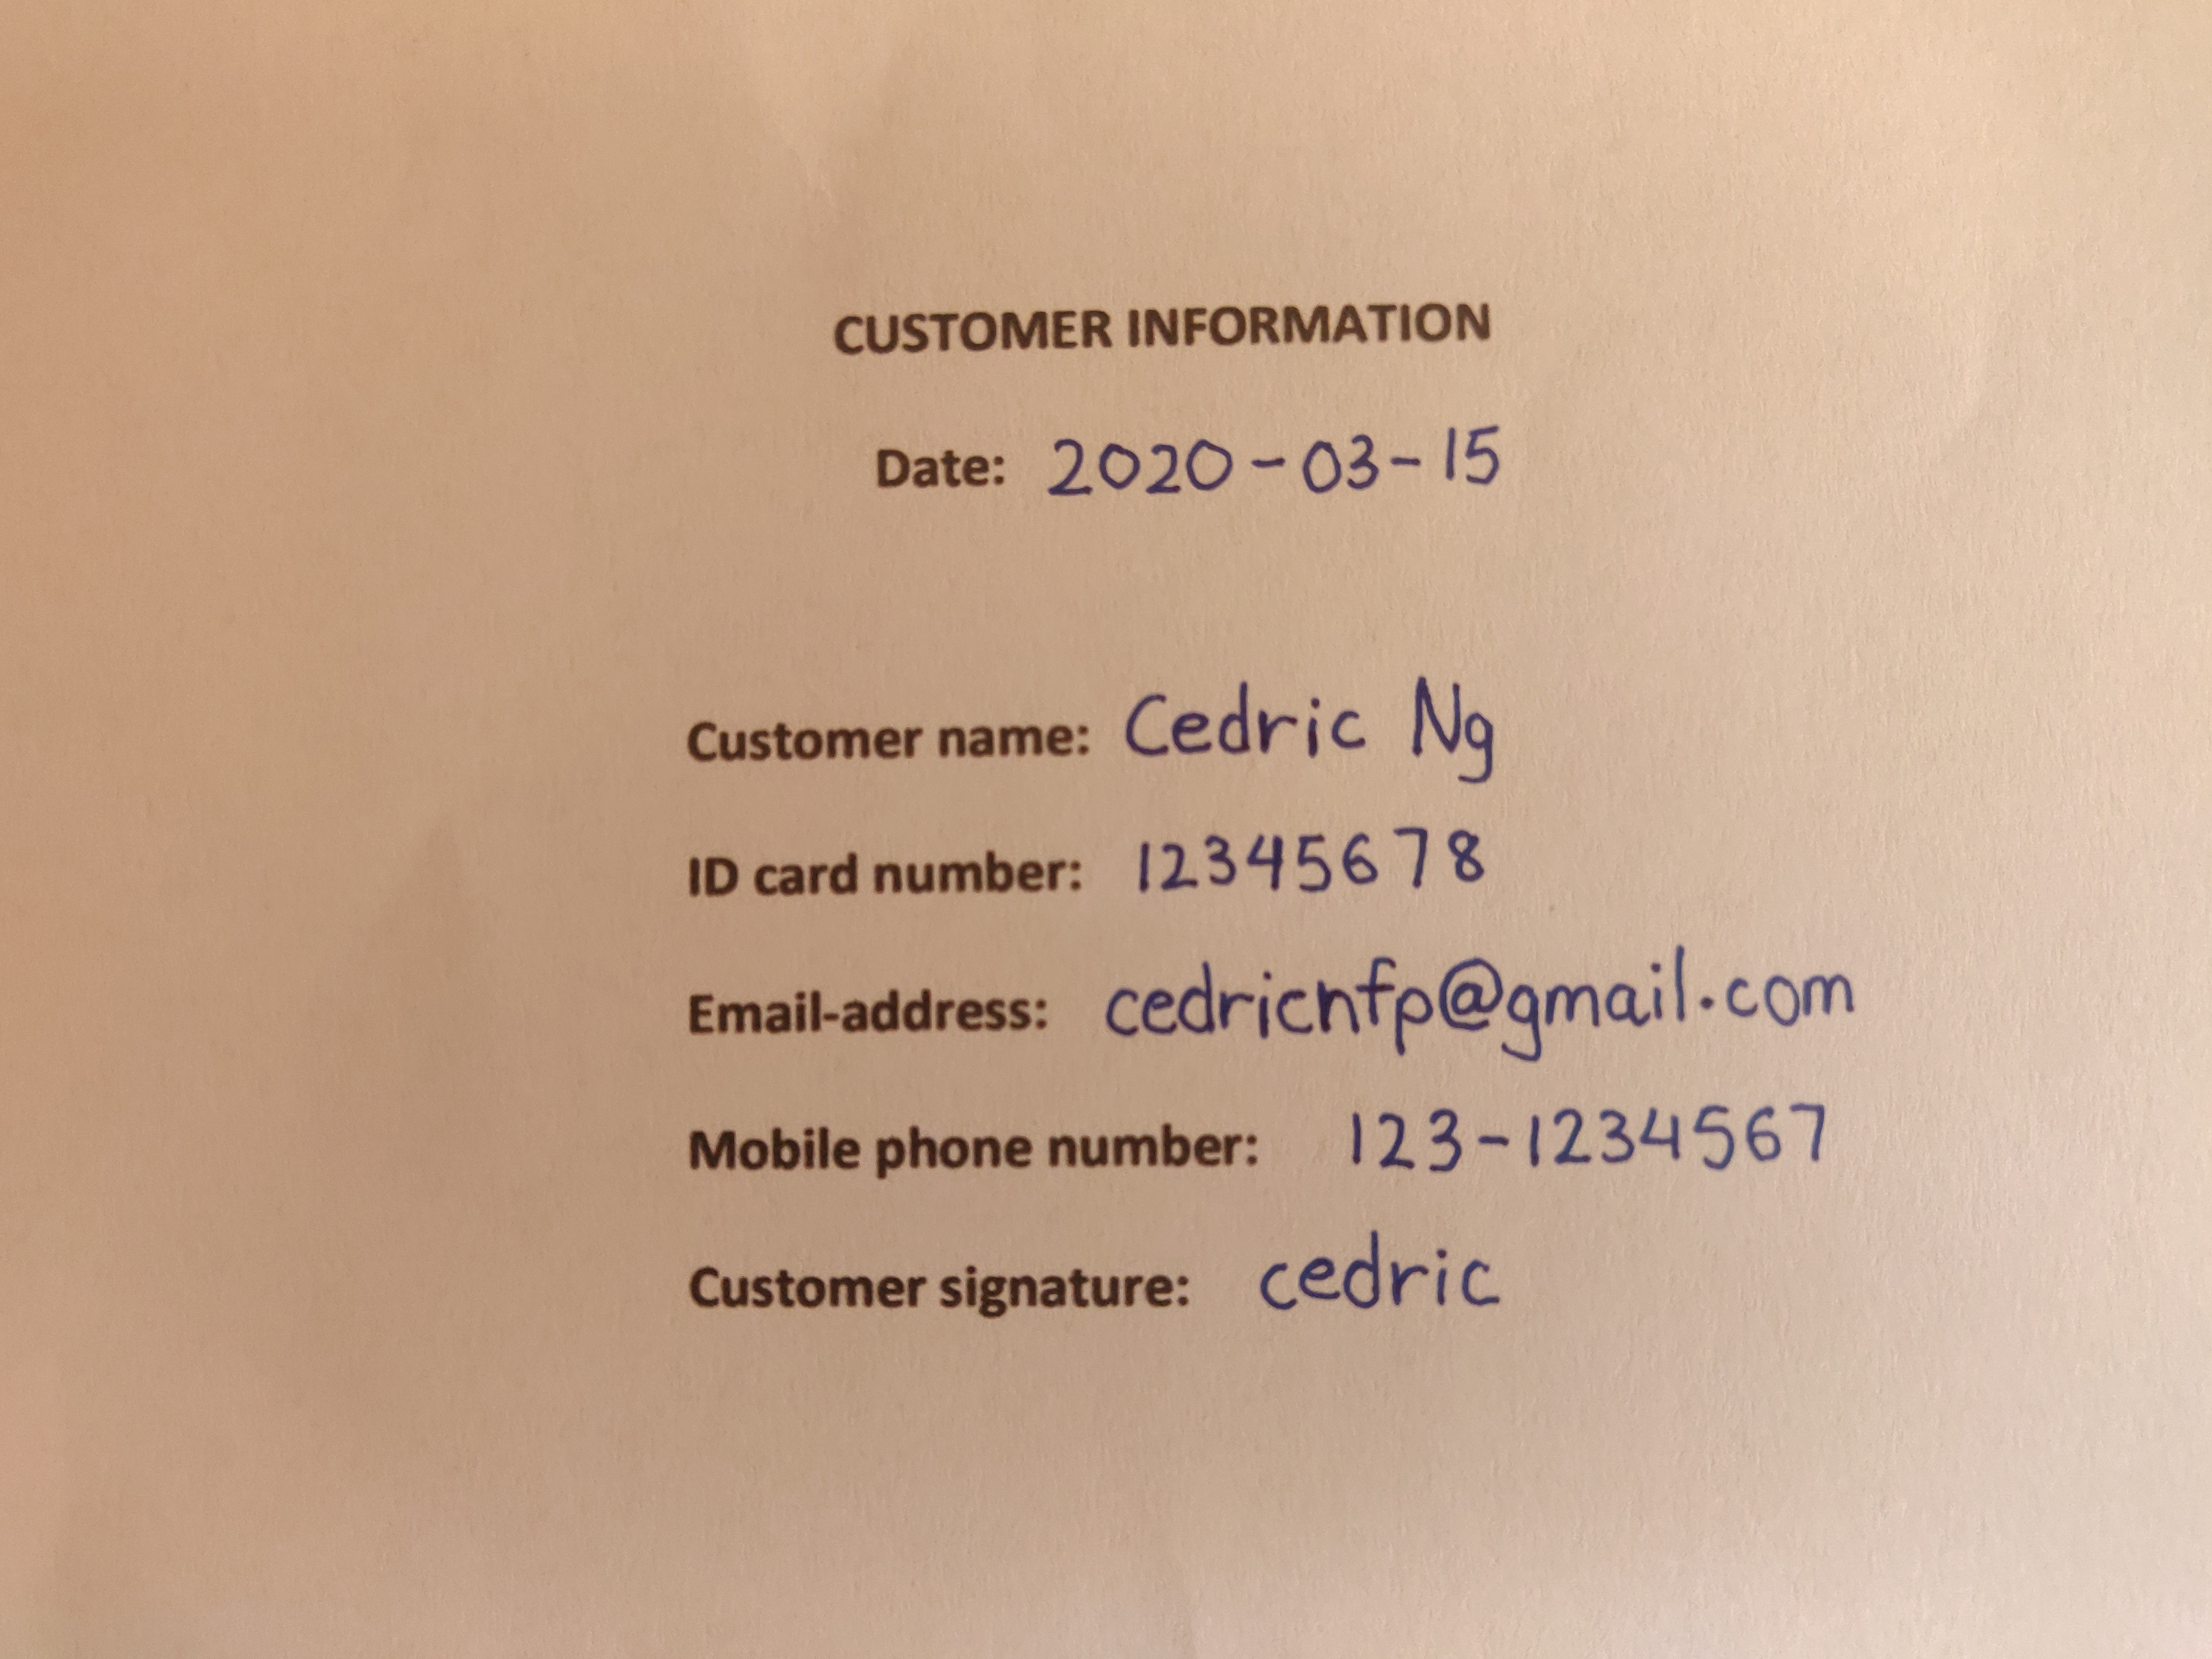 CUSTOMER INFORMATION
Date: 2020-03-15
Customer name: Cedric Ng
ID card number: 12345678
Email-address: cedricnfp@gmail.com
Mobile phone number: 123-1234567
Customer signature: cedric